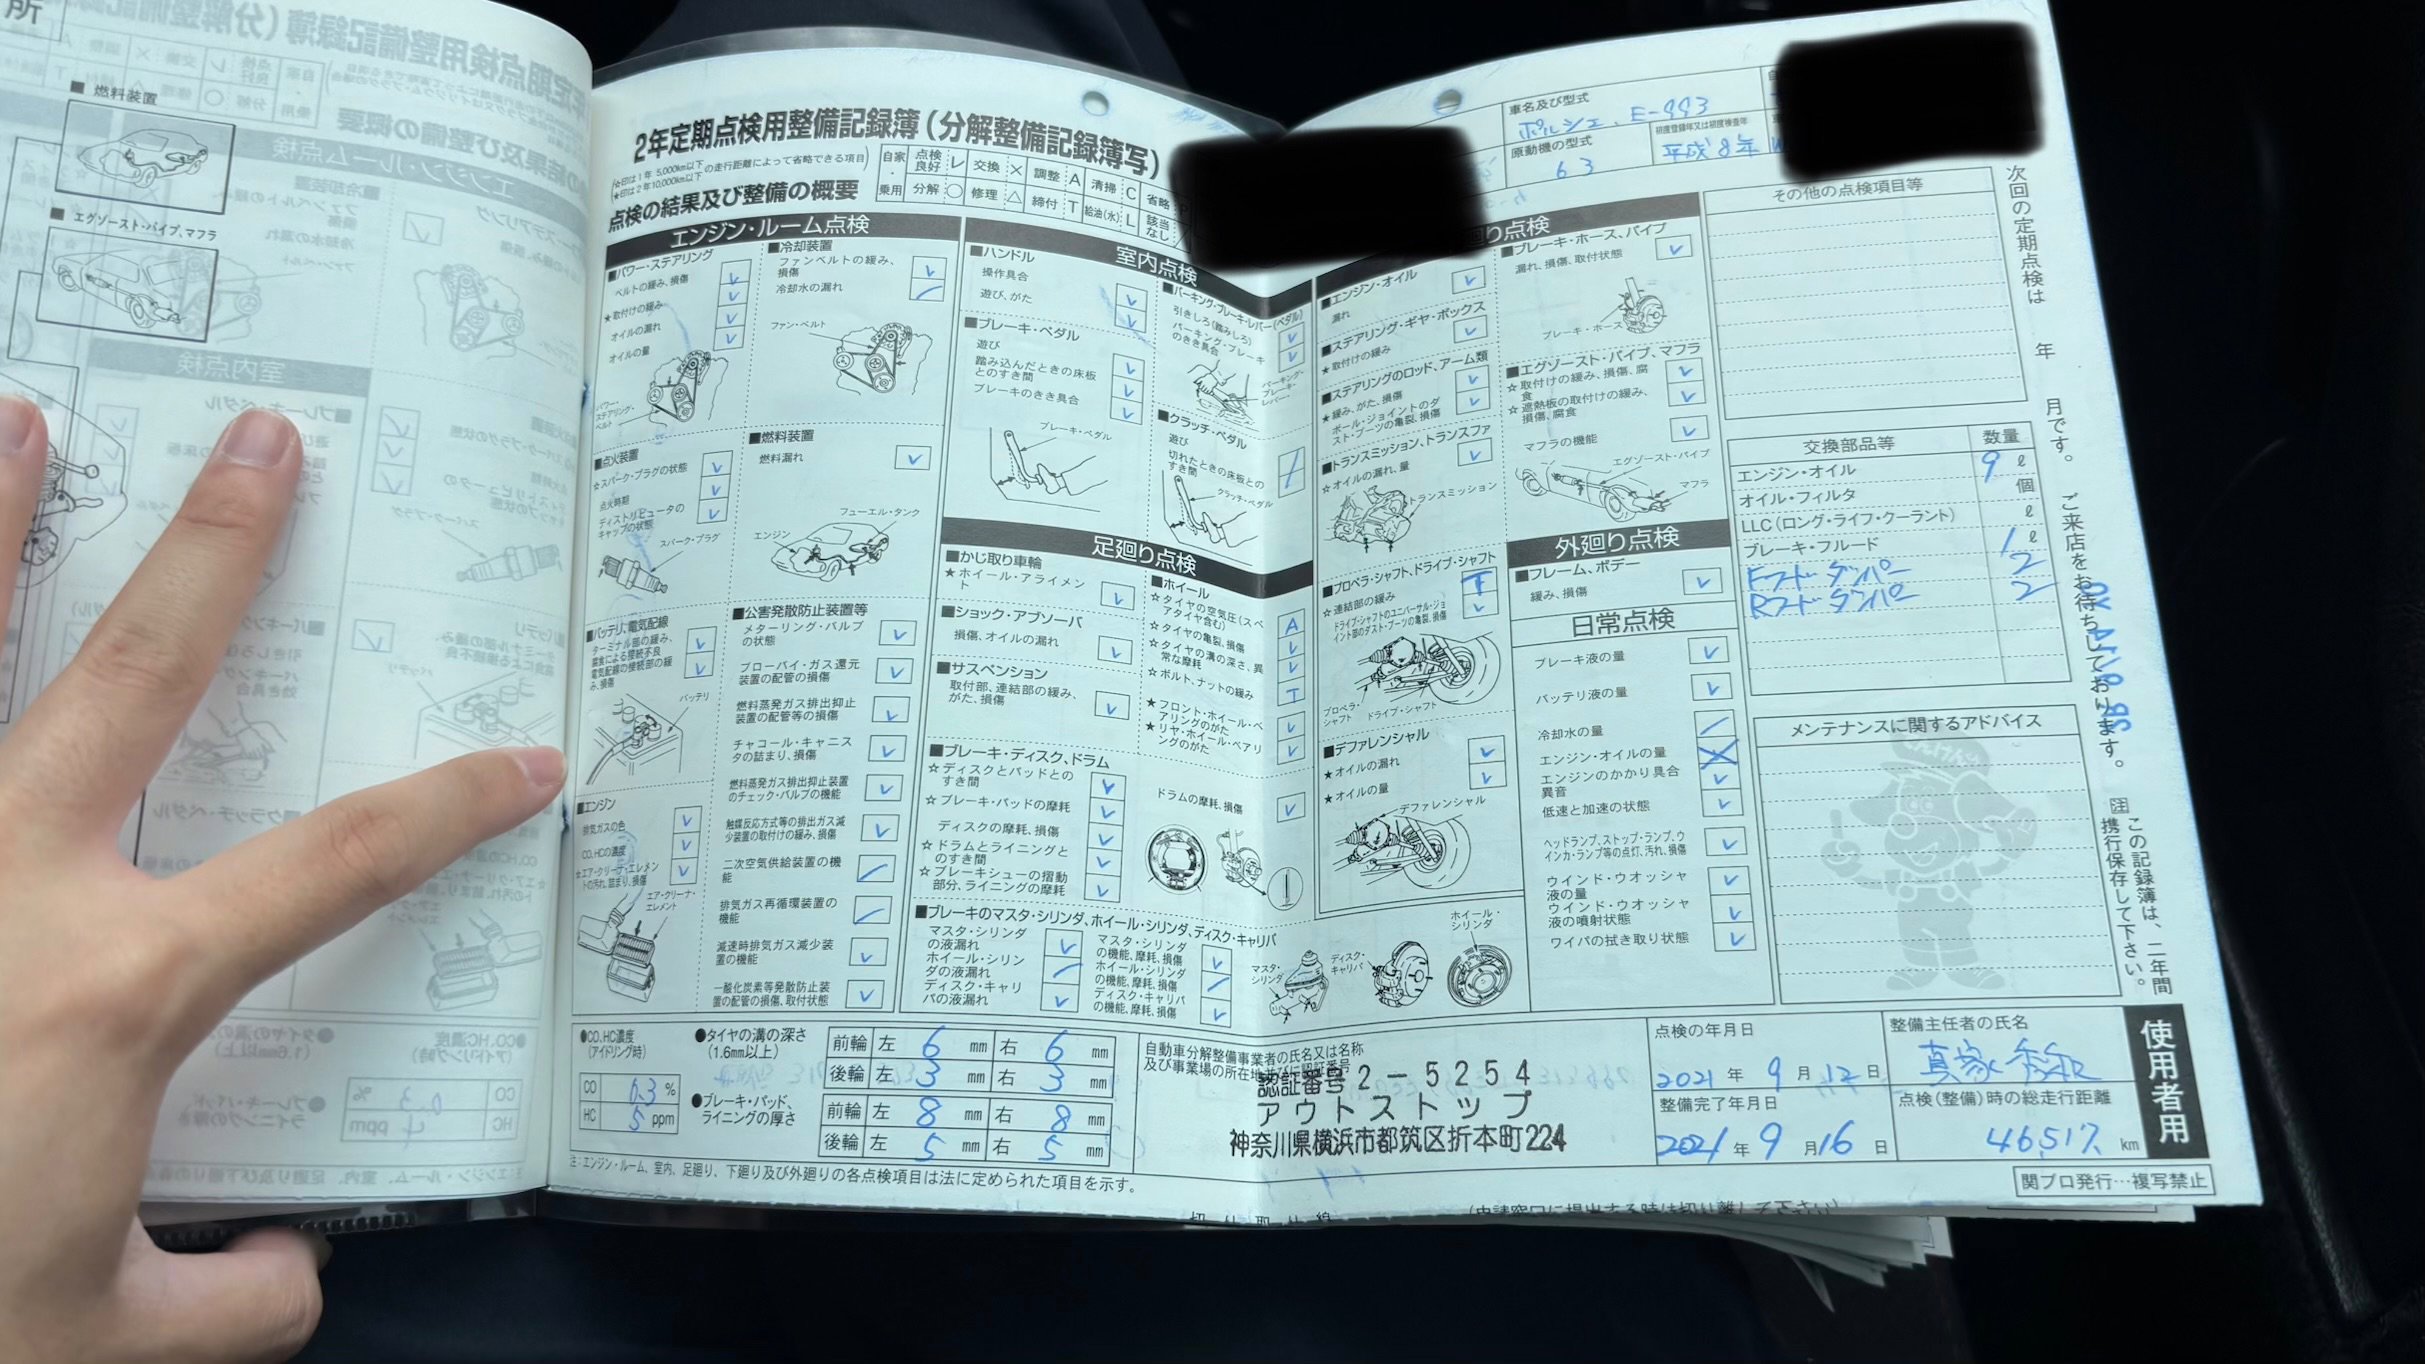 所
■ 燃料装置
■ エグゾースト・パイプ、マフラ
2年定期点検用整備記録簿(分解整備記録簿写)
☆印は1年 5,000km以下
★印は2年10,000km以下
の走行距離によって省略できる項目
点検の結果及び整備の概要
自家・乗用
点検良好 レ 交換 × 調整 A 清掃 C 省略 P
分解 ○ 修理 △ 締付 T 給油(水) L 該当なし /
エンジン・ルーム点検
■パワー・ステアリング
ベルトの緩み、損傷
★取付けの緩み
オイルの漏れ
オイルの量
パワー・ステアリング・ベルト
■冷却装置
ファンベルトの緩み、損傷
冷却水の漏れ
ファン・ベルト
■点火装置
☆スパーク・プラグの状態
点火時期
ディストリビュータのキャップの状態
スパーク・プラグ
■燃料装置
燃料漏れ
フューエル・タンク
エンジン
■バッテリ、電気配線
ターミナル部の緩み、腐食による接続不良
電気配線の接続部の緩み、損傷
バッテリ
■エンジン
排気ガスの色
CO、HCの濃度
☆エア・クリーナ・エレメントの汚れ、詰まり、損傷
エア・クリーナ・エレメント
■公害発散防止装置等
メターリング・バルブの状態
ブローバイ・ガス還元装置の配管の損傷
燃料蒸発ガス排出抑止装置の配管等の損傷
チャコール・キャニスタの詰まり、損傷
燃料蒸発ガス排出抑止装置のチェック・バルブの機能
触媒反応方式等の排出ガス減少装置の取付けの緩み、損傷
二次空気供給装置の機能
排気ガス再循環装置の機能
減速時排気ガス減少装置の機能
一酸化炭素等発散防止装置の配管の損傷、取付状態
室内点検
■ハンドル
操作具合
遊び、がた
■ブレーキ・ペダル
遊び
踏み込んだときの床板とのすき間
ブレーキのきき具合
ブレーキ・ペダル
■パーキング・ブレーキ・レバー(ペダル)
引きしろ(踏みしろ)
パーキング・ブレーキのきき具合
パーキング・ブレーキ・レバー
■クラッチ・ペダル
遊び
切れたときの床板とのすき間
クラッチ・ペダル
足廻り点検
■かじ取り車輪
★ホイール・アライメント
■ショック・アブソーバ
損傷、オイルの漏れ
■サスペンション
取付部、連結部の緩み、がた、損傷
■ホイール
☆タイヤの空気圧(スペアタイヤ含む) A
☆タイヤの亀裂、損傷
☆タイヤの溝の深さ、異常な摩耗
☆ボルト、ナットの緩み T
★フロント・ホイール・ベアリングのがた
★リヤ・ホイール・ベアリングのがた
■ブレーキ・ディスク、ドラム
☆ディスクとパッドとのすき間
☆ブレーキ・パッドの摩耗
ディスクの摩耗、損傷
☆ドラムとライニングとのすき間
☆ブレーキシューの摺動部分、ライニングの摩耗
ドラムの摩耗、損傷
■ブレーキのマスタ・シリンダ、ホイール・シリンダ、ディスク・キャリパ
マスタ・シリンダの液漏れ
ホイール・シリンダの液漏れ
ディスク・キャリパの液漏れ
マスタ・シリンダの機能、摩耗、損傷
ホイール・シリンダの機能、摩耗、損傷
ディスク・キャリパの機能、摩耗、損傷
マスタ・シリンダ
ディスク・キャリパ
ホイール・シリンダ
廻り点検
■エンジン・オイル
漏れ
■ステアリング・ギヤ・ボックス
★取付けの緩み
■ステアリングのロッド、アーム類
★緩み、がた、損傷
★ボール・ジョイントのダスト・ブーツの亀裂、損傷
■トランスミッション、トランスファ
☆オイルの漏れ、量
トランスミッション
■プロペラ・シャフト、ドライブ・シャフト
☆連結部の緩み T
ドライブ・シャフトのユニバーサル・ジョイント部のダスト・ブーツの亀裂、損傷
プロペラ・シャフト
ドライブ・シャフト
■デファレンシャル
★オイルの漏れ
★オイルの量
デファレンシャル
■ブレーキ・ホース、パイプ
漏れ、損傷、取付状態
ブレーキ・ホース
■エグゾースト・パイプ、マフラ
☆取付けの緩み、損傷、腐食
☆遮熱板の取付けの緩み、損傷、腐食
マフラの機能
エグゾースト・パイプ
マフラ
外廻り点検
■フレーム、ボデー
緩み、損傷
日常点検
ブレーキ液の量
バッテリ液の量
冷却水の量
エンジン・オイルの量
エンジンのかかり具合異音
低速と加速の状態
ヘッドランプ、ストップ・ランプ、ウインカ・ランプ等の点灯、汚れ、損傷
ウインド・ウオッシャ液の量
ウインド・ウオッシャ液の噴射状態
ワイパの拭き取り状態
車名及び型式
ポルシェ、E-993
原動機の型式
63
初度登録年又は初度検査年
平成8年
その他の点検項目等
交換部品等 数量
エンジン・オイル 9 ℓ
オイル・フィルタ 個
LLC(ロング・ライフ・クーラント) ℓ
ブレーキ・フルード 1 ℓ
Fフードダンパー 2
Rフードダンパー 2
メンテナンスに関するアドバイス
次回の定期点検は 年 月です。ご来店をお待ちしております。
注 この記録簿は、二年間携行保存して下さい。
●CO、HC濃度(アイドリング時)
CO 0.3 %
HC 5 ppm
●タイヤの溝の深さ(1.6mm以上)
前輪 左 6 mm 右 6 mm
後輪 左 3 mm 右 3 mm
●ブレーキ・パッド、ライニングの厚さ
前輪 左 8 mm 右 8 mm
後輪 左 5 mm 右 5 mm
自動車分解整備事業者の氏名又は名称
及び事業場の所在地並びに認証番号
認証番号2-5254
アウトストップ
神奈川県横浜市都筑区折本町224
点検の年月日
2021年9月12日
整備完了年月日
2021年9月16日
整備主任者の氏名
点検(整備)時の総走行距離
46,517 km
使用者用
注:エンジン・ルーム、室内、足廻り、下廻り及び外廻りの各点検項目は法に定められた項目を示す。
関ブロ発行…複写禁止
切り取り線
(申請窓口に提出する時は切り離して下さい)